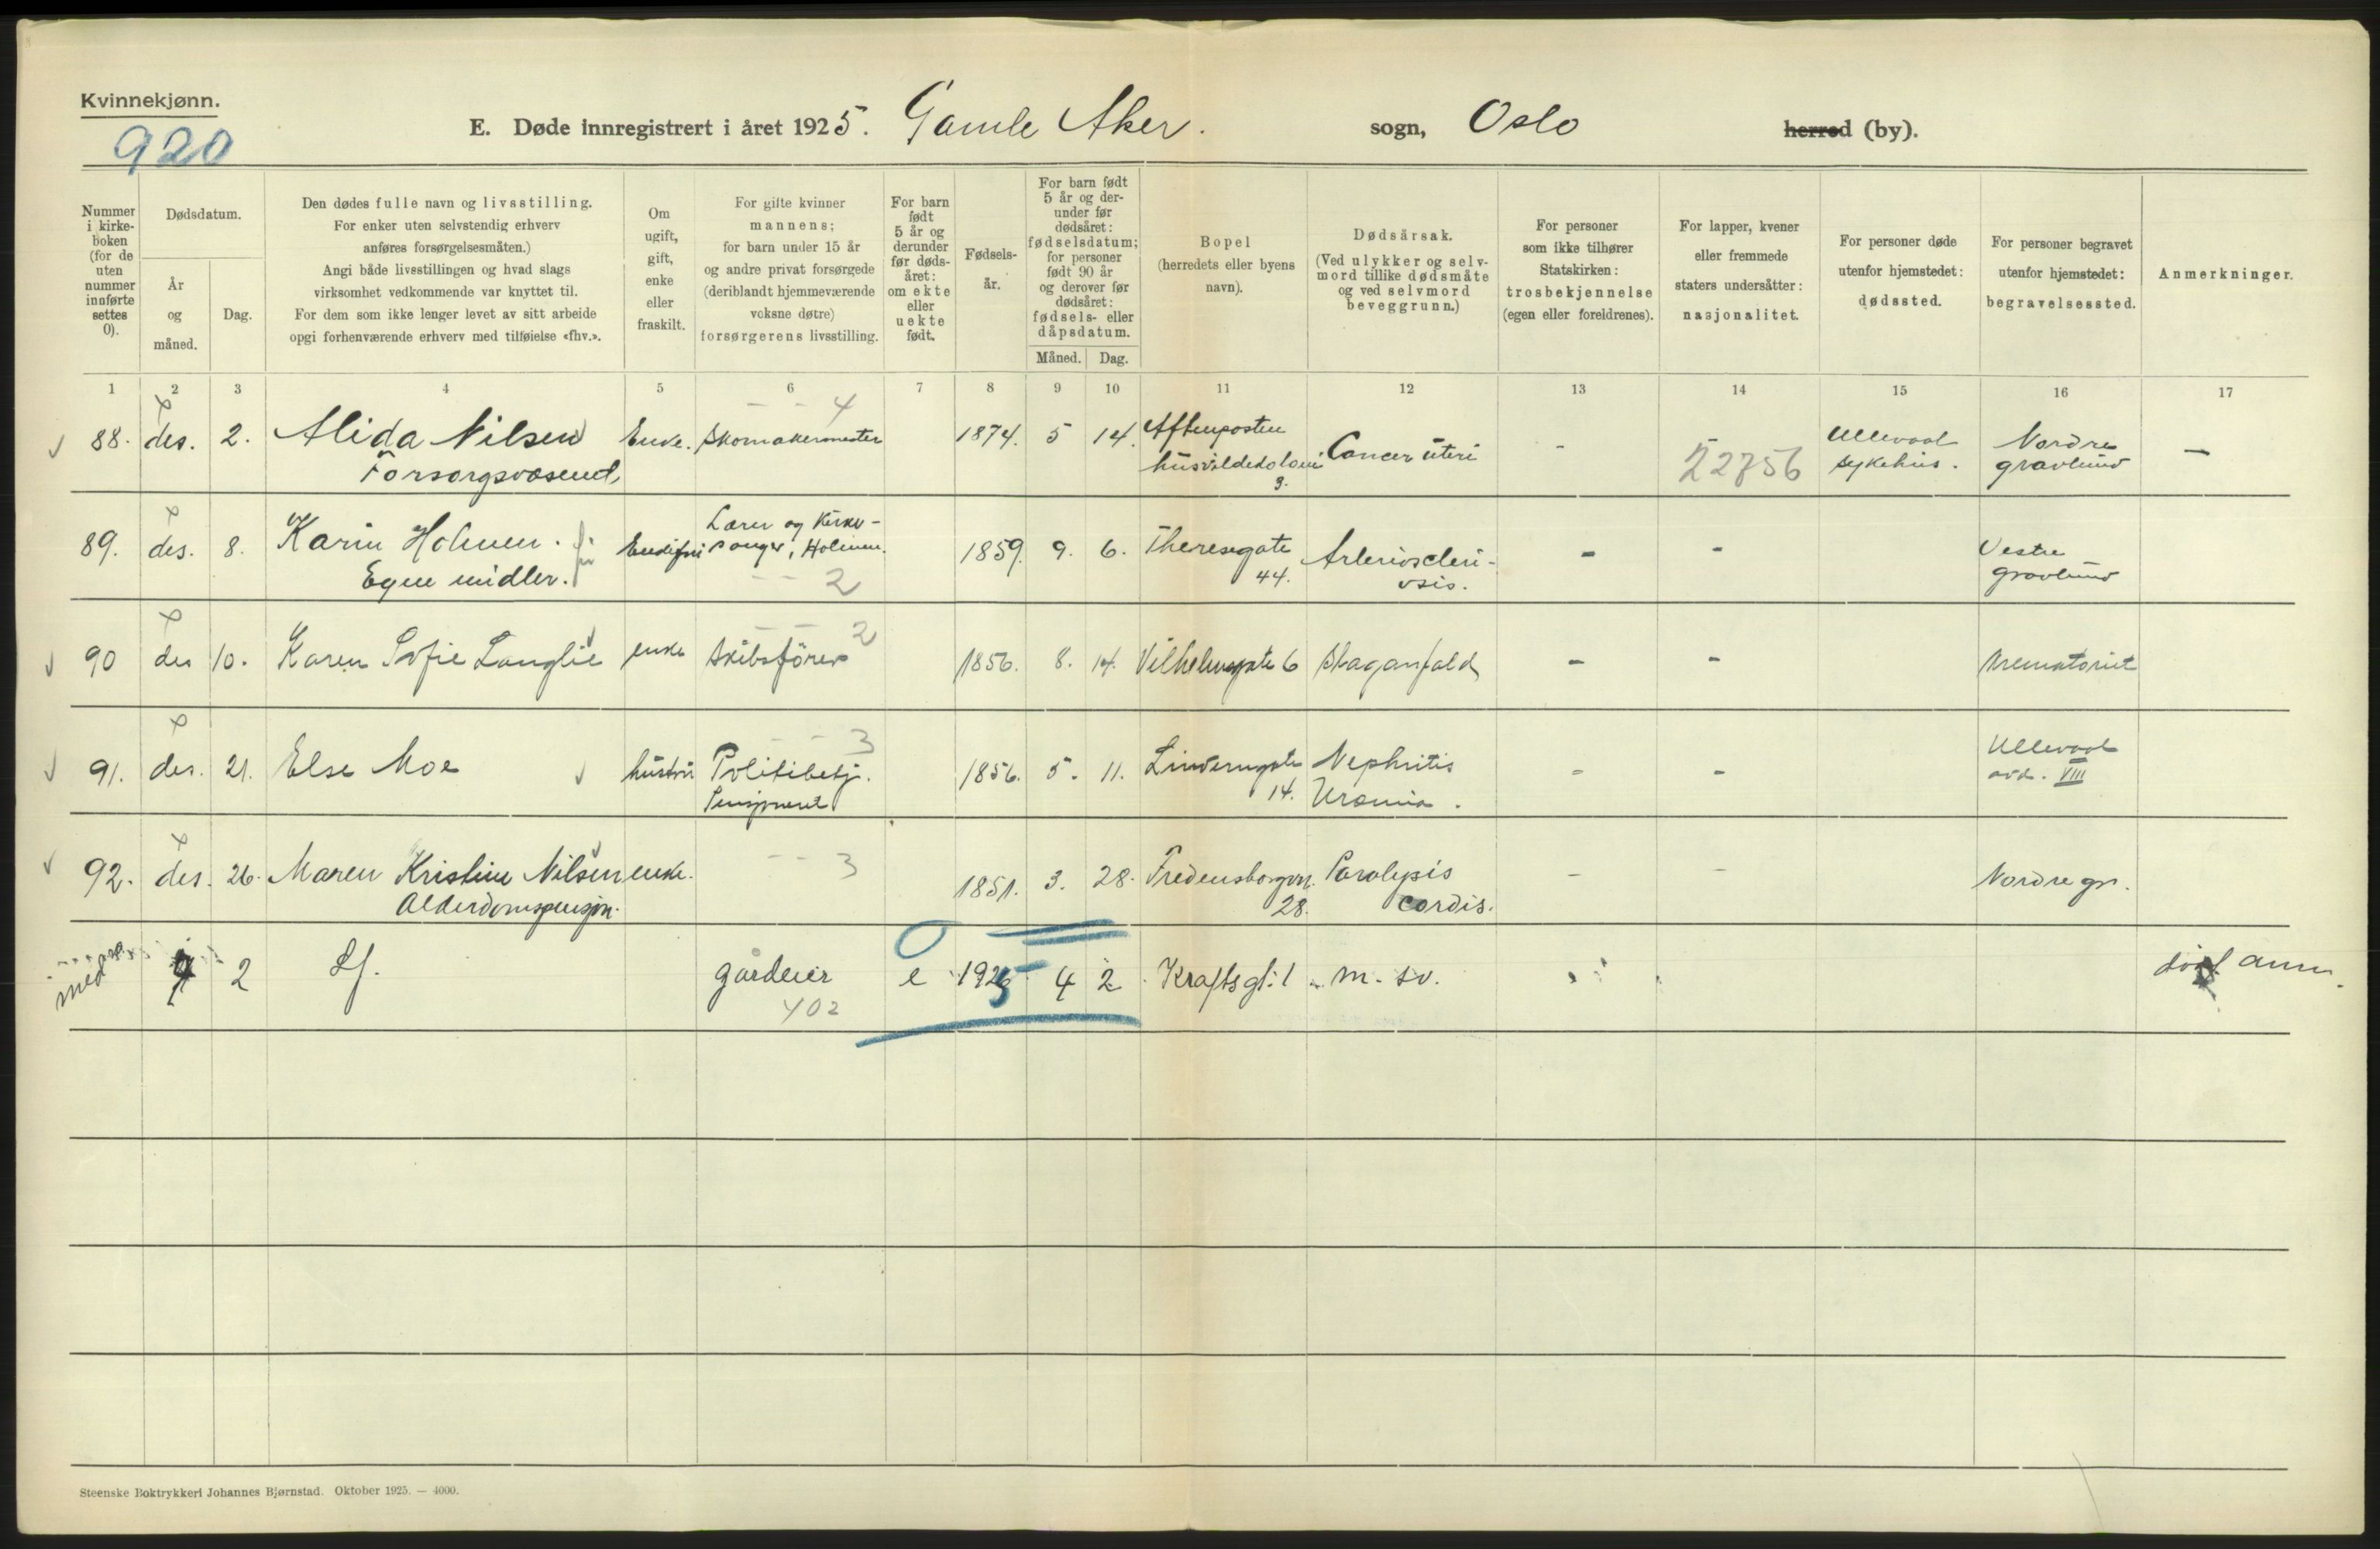 Kvinnekjønn.
920
E. Døde innregistrert i året 1925. Gamle Aker. sogn, Oslo herred (by).
Nummer i kirkeboken (for de uten nummer innførte settes 0).
Dødsdatum.
År og måned.
Dag.
Den dødes fulle navn og livsstilling.
For enker uten selvstendig erhverv
anføres forsørgelsesmåten.)
Angi både livsstillingen og hvad slags
virksomhet vedkommende var knyttet til.
For dem som ikke lenger levet av sitt arbeide
opgi forhenværende erhverv med tilføielse «fhv.».
Om ugift, gift, enke eller fraskilt.
For gifte kvinner
mannens;
for barn under 15 år
og andre privat forsørgede
(deriblandt hjemmeværende
voksne døtre)
forsørgerens livsstilling.
For barn født 5 år og derunder før dødsåret: om ekte eller uekte født.
Fødselsår.
For barn født
5 år og derunder før
dødsåret:
fødselsdatum;
for personer
født 90 år
og derover før
dødsåret:
fødsels- eller
dåpsdatum.
Måned. Dag.
Bopel
(herredets eller byens
navn).
Dødsårsak.
(Ved ulykker og selvmord tillike dødsmåte
og ved selvmord
beveggrunn.)
For personer
som ikke tilhører
Statskirken:
trosbekjennelse
(egen eller foreldrenes).
For lapper, kvener
eller fremmede
staters undersåtter:
nasjonalitet.
For personer døde
utenfor hjemstedet:
dødssted.
For personer begravet
utenfor hjemstedet:
begravelsessted.
Anmerkninger.
1 2 3 4 5 6 7 8 9 10 11 12 13 14 15 16 17
88. des. 2. Alida Nilsen Enke. Skomakermester 4 1874. 5 14. Aftenposten Cancer uteri - 22756 Ullevaal Nordre -
Forsorgsvæsenet, 3. sykehus. gravlund
89. des. 8. Karin Holmen. Lærer og Kirke-
sanger, Holmen. 1859. 9. 6. Theresegate Arteriosclerosis. - - Vestre
Egne midler. 2 44. gravlund
90 des 10. Karen Sofie Langlie enke Skibsfører 2 1856. 8. 14. Vilhelmsgate 6 Slaganfald - - Krematoriet
91. des. 21. Else Moe hustru Politibetj. 3 1856. 5. 11. Linderngate Nephritis - - Ullevaal
Pensjonert 14. Uræmia. avd. VIII
92. des. 26. Maren Kristine Nilsen enke. 3 1851. 3. 28. Fredensborgvn. Paralysis - - Nordre gr.
Alderdomspensjon. 28. cordis.
med 2 Lf. gårdeier e 1925 4 2 Kraftsgt. 1 m. sv.
402
Steenske Boktrykkeri Johannes Bjørnstad. Oktober 1925. — 4000.